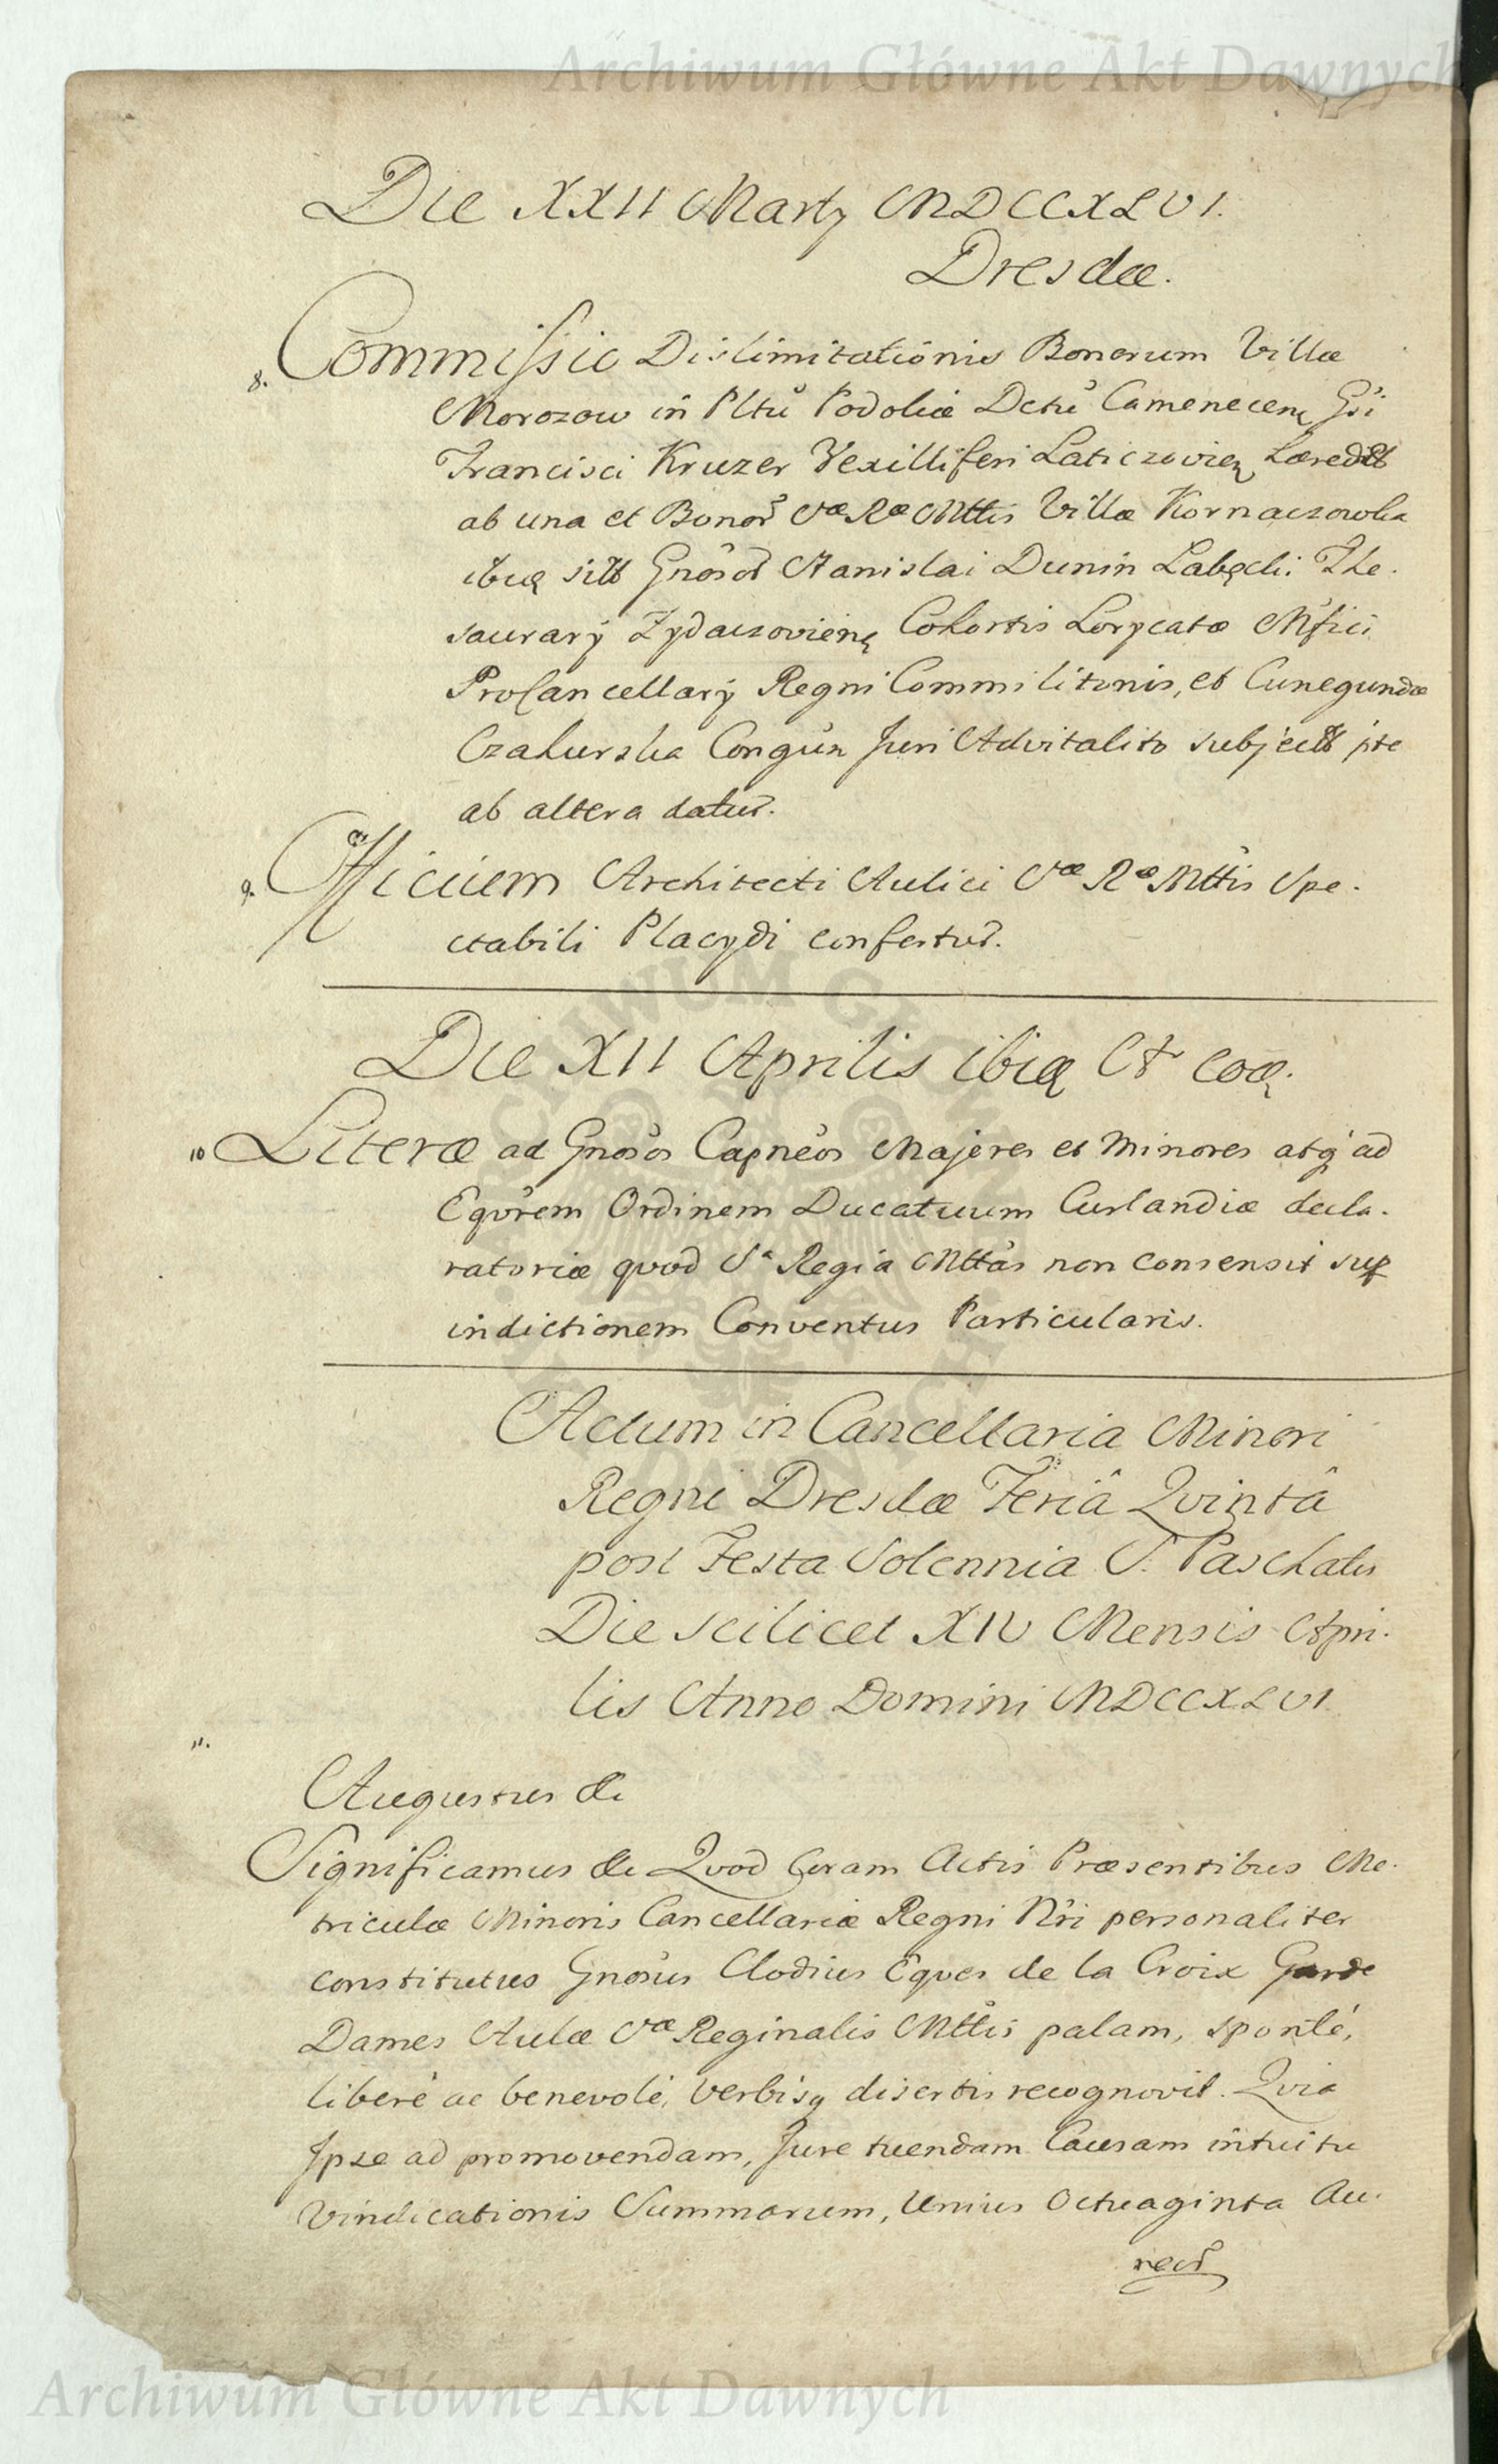 Archiwum Główne Akt Dawnych
Die XXII Martÿ MDCCXLVI.
Dresdæ.
8. Commissio Dislimitationis Bonorum Villæ
Morozow in Pltu Podoliæ Dctu Camenecenę Gsi
Francisci Kruzer Vexilliferi Laticzovienę
ab una et Bonor Sæ Ræ Mttis Villæ Kornaczowka
ibiq sitt Gnosor Stanislai Dunin Labęcki The-
saurarÿ Zydaczovienę Cohortis Lorycatæ Mfici
ProCancellarÿ Regni Commilitonis, et Cunegundæ
Czahurska Congum Juri Advitalito subjectt pte
ab altera datur.
9. Officium Architecti Aulici Sæ Ræ Mttis Spe-
ctabili Placydi confertur.
Die XII Aprilis ibiq Et eoq.
10 Literæ ad Gnosos Capneos Majores et Minores atq ad
Eqvrem Ordinem Ducatuum Curlandiæ decla-
ratoriæ qvod Sa Regia Mttas non consensit sup
indictionem Conventus Particularis.
Actum in Cancellaria Minori
Regni Dresdæ Feriâ Qvintâ
post Festa Solennia S. Paschatis
Die scilicet XIV Mensis Apri-
lis Anno Domini MDCCXLVI
11.
Augustus &c
Significamus &c Qvod Coram Actis Præsentibus Me-
triculæ Minoris Cancellariæ Regni Nri personaliter
constitutus Gnosus Clodius Eqves de la Croix Garde
Dames Aulæ Sæ Reginalis Mttis palam, spontè,
liberè ac benevolè, verbisq disertis recognovit. Qvia
Ipse ad promovendam, Jure tuendam Causam intuitu
Vindicationis Summarum, Unius Octuaginta Au-
reor
Archiwum Główne Akt Dawnych